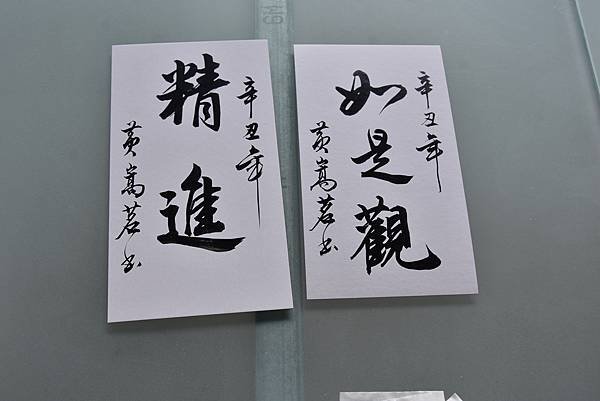 辛丑年
精進
黃嵩茗书
辛丑年
如是觀
黃嵩茗书